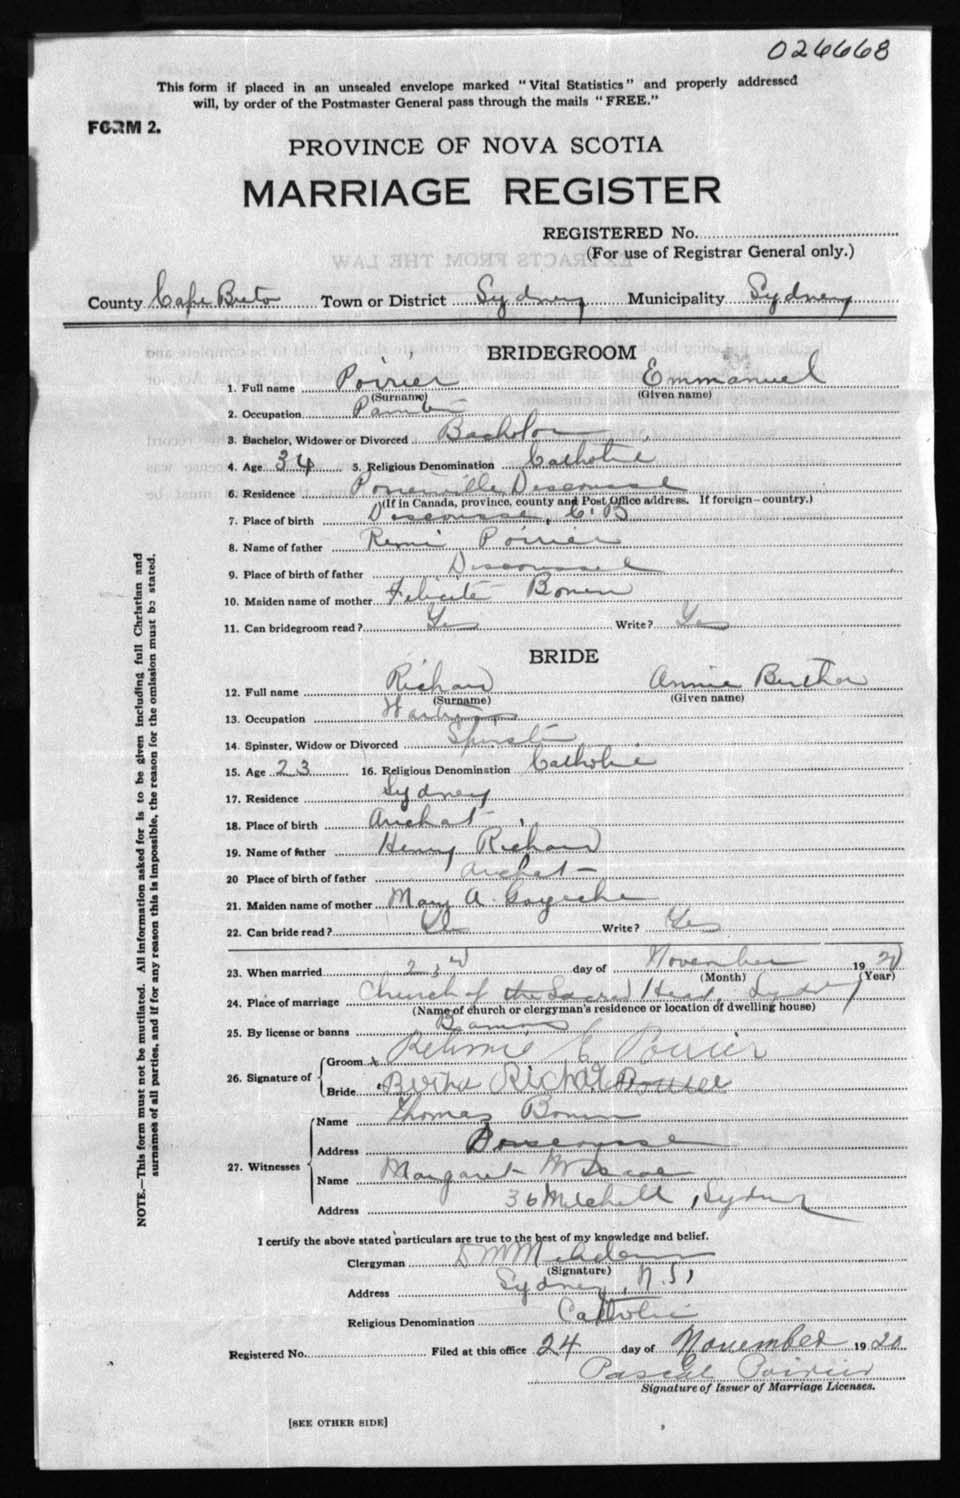 026668
This form if placed in an unsealed envelope marked "Vital Statistics" and properly addressed
will, by order of the Postmaster General pass through the mails "FREE."
FORM 2.
PROVINCE OF NOVA SCOTIA
MARRIAGE REGISTER
REGISTERED No.
(For use of Registrar General only.)
EXTRACTS FROM THE LAW
County Cape Breton Town or District Sydney Municipality Sydney
BRIDEGROOM
1. Full name Poirier Emmanuel
(Surname) (Given name)
2. Occupation
3. Bachelor, Widower or Divorced Bachelor
4. Age 34 5. Religious Denomination Catholic
6. Residence Poirierville Descousse
(If in Canada, province, county and Post Office address. If foreign—country.)
7. Place of birth Descousse, C.B
8. Name of father Remi Poirier
9. Place of birth of father Descousse
10. Maiden name of mother Felicite Bonin
11. Can bridegroom read? Yes Write? Yes
BRIDE
12. Full name Richard Annie Bertha
(Surname) (Given name)
13. Occupation
14. Spinster, Widow or Divorced Spinster
15. Age 23 16. Religious Denomination Catholic
17. Residence Sydney
18. Place of birth Arichat
19. Name of father Henry Richard
20 Place of birth of father Arichat
21. Maiden name of mother Mary A.
22. Can bride read? Yes Write? Yes
23. When married 23rd day of November 1920
(Month) (Year)
24. Place of marriage Church of the Sacred Heart, Sydney
(Name of church or clergyman's residence or location of dwelling house)
25. By license or banns Banns
26. Signature of Groom x E Poirier
Bride Bertha Richard
27. Witnesses
Name Thomas Bonin
Address Descousse
Name Margaret
Address 36 Mitchell, Sydney
I certify the above stated particulars are true to the best of my knowledge and belief.
Clergyman D M McAdam
(Signature)
Address Sydney, N.S,
Religious Denomination Catholic
Registered No. Filed at this office 24 day of November 1920
Pascal Poirier
Signature of Issuer of Marriage Licenses.
[SEE OTHER SIDE]
NOTE.—This form must not be mutilated. All information asked for is to be given including full Christian and
surnames of all parties, and if for any reason this is impossible, the reason for the omission must be stated.